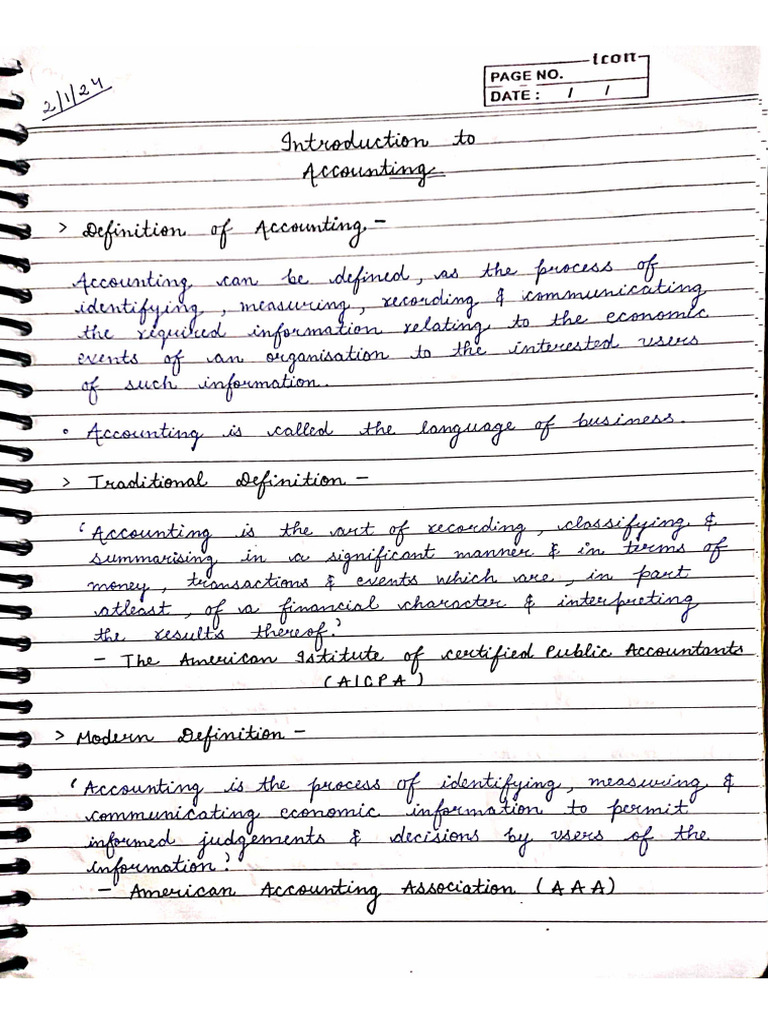 2/1/24
icon
PAGE NO.
DATE : / /
Introduction to
Accounting
> Definition of Accounting -
Accounting can be defined, as the process of
identifying, measuring, recording & communicating
the required information relating to the economic
events of an organisation to the interested users
of such information.
• Accounting is called the language of business.
> Traditional Definition -
'Accounting is the art of recording, classifying &
summarising in a significant manner & in terms of
money, transactions & events which are, in part
atleast, of a financial character & interpreting
the results thereof.'
- The American Istitute of certified Public Accountants
(AICPA)
> Modern Definition -
'Accounting is the process of identifying, measuring &
communicating economic information to permit
informed judgements & decisions by users of the
information.'
- American Accounting Association (AAA)